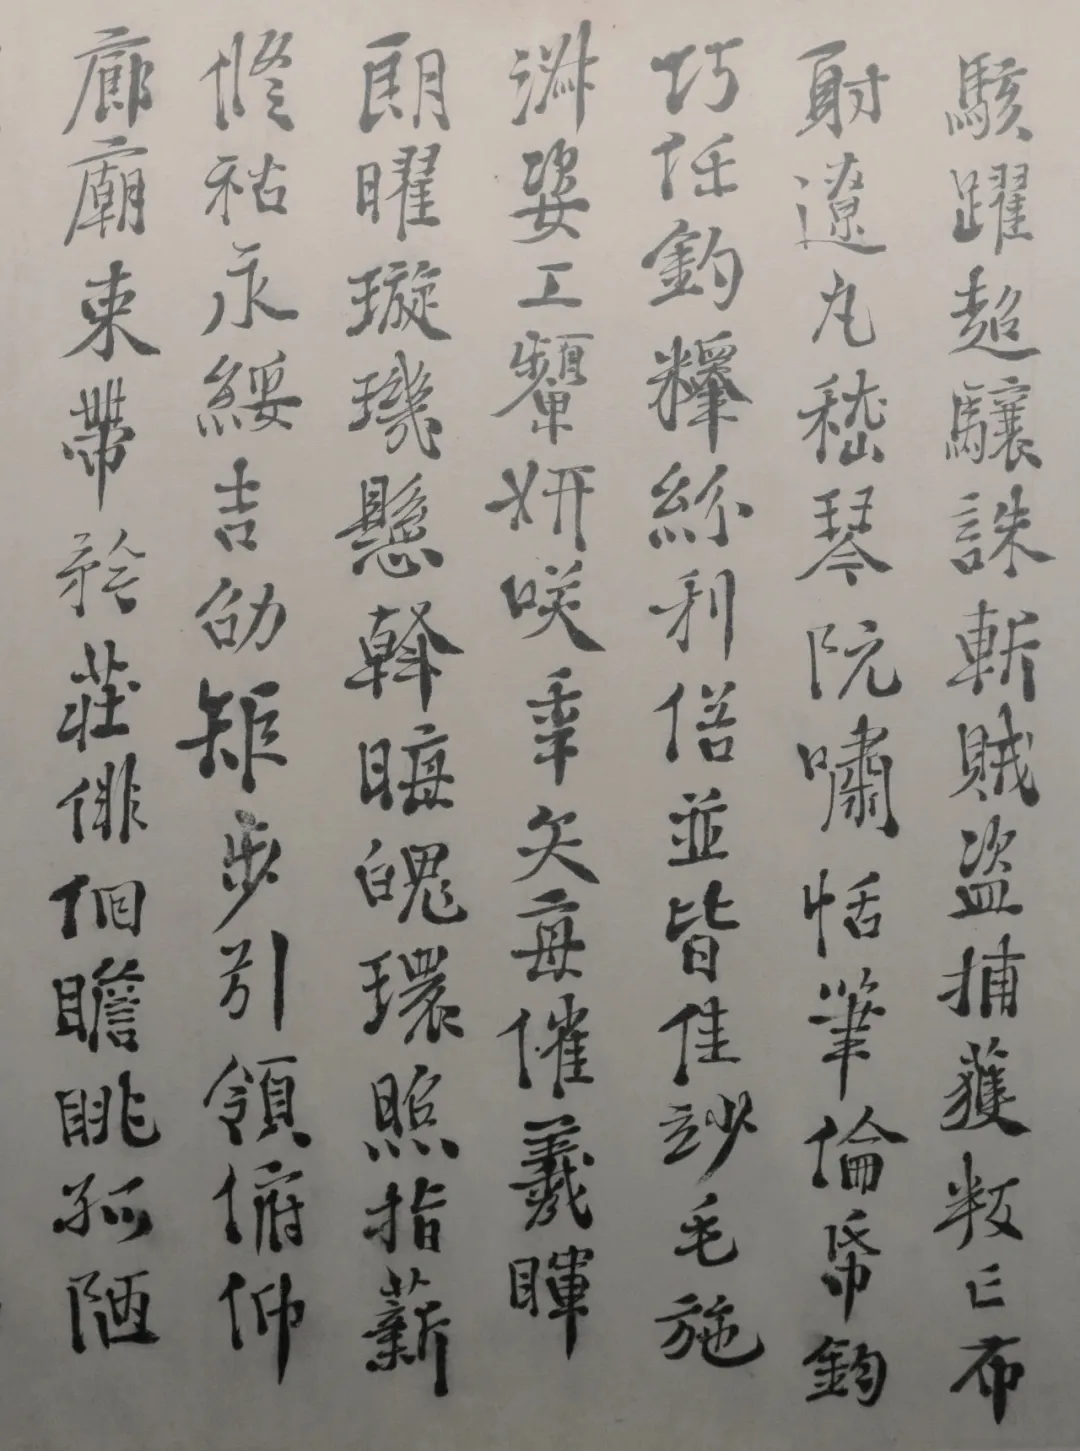 駭躍超驤誅斬賊盜捕獲叛亡布
射遼丸嵇琴阮嘯恬筆倫帋鈞
巧任釣釋紛利俗並皆佳妙毛施
淑姿工顰妍咲年矢每催羲暉
朗曜璇璣懸斡晦魄環照指薪
修祜永綏吉劭矩步引領俯仰
廊廟束帶矜莊俳佪瞻眺孤陋